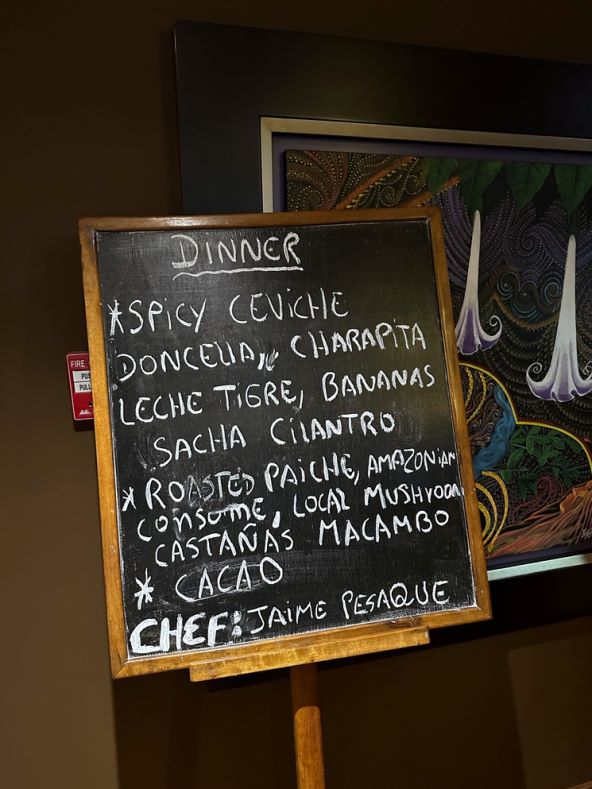 DINNER
*SPICY CEVICHE
DONCELLA, CHARAPITA
LECHE TIGRE, BANANAS
SACHA CILANTRO
*ROASTED PAICHE, AMAZONIAN
CONSOME, LOCAL MUSHROOM
CASTAÑAS MACAMBO
* CACAO
CHEF: JAIME PESAQUE
FIRE
PULL